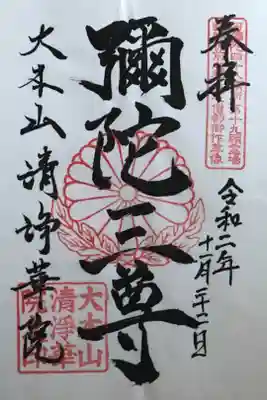 奉拝
令和二年
十一月二十二日
彌陀三尊
大本山 清浄華院
大本山
清浄華
院印